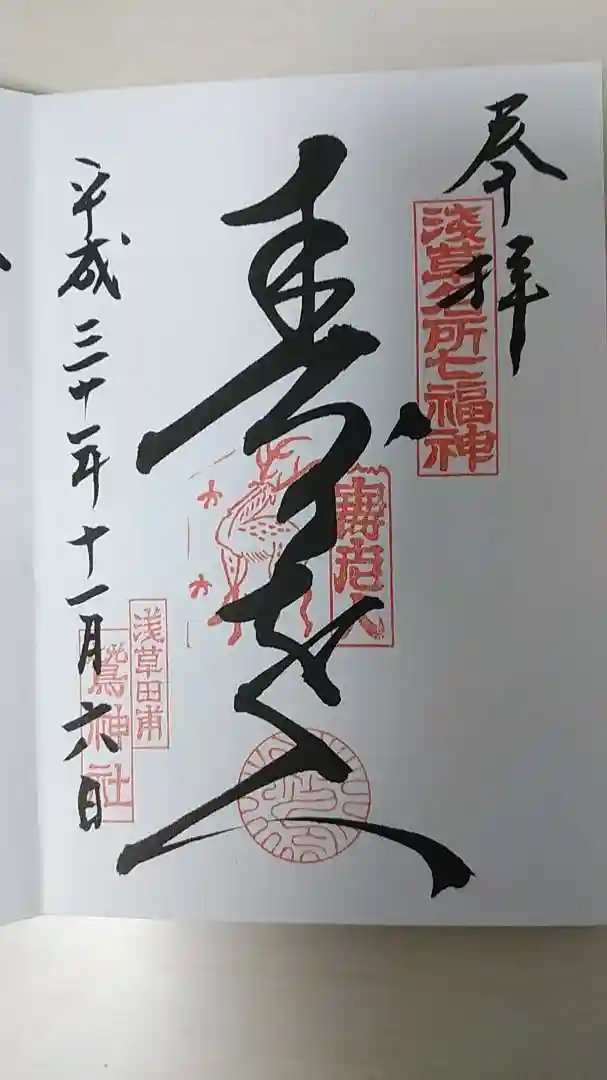 奉拝
浅草名所七福神
寿老人
壽老人
平成三十一年十一月六日
浅草田甫
鷲神社